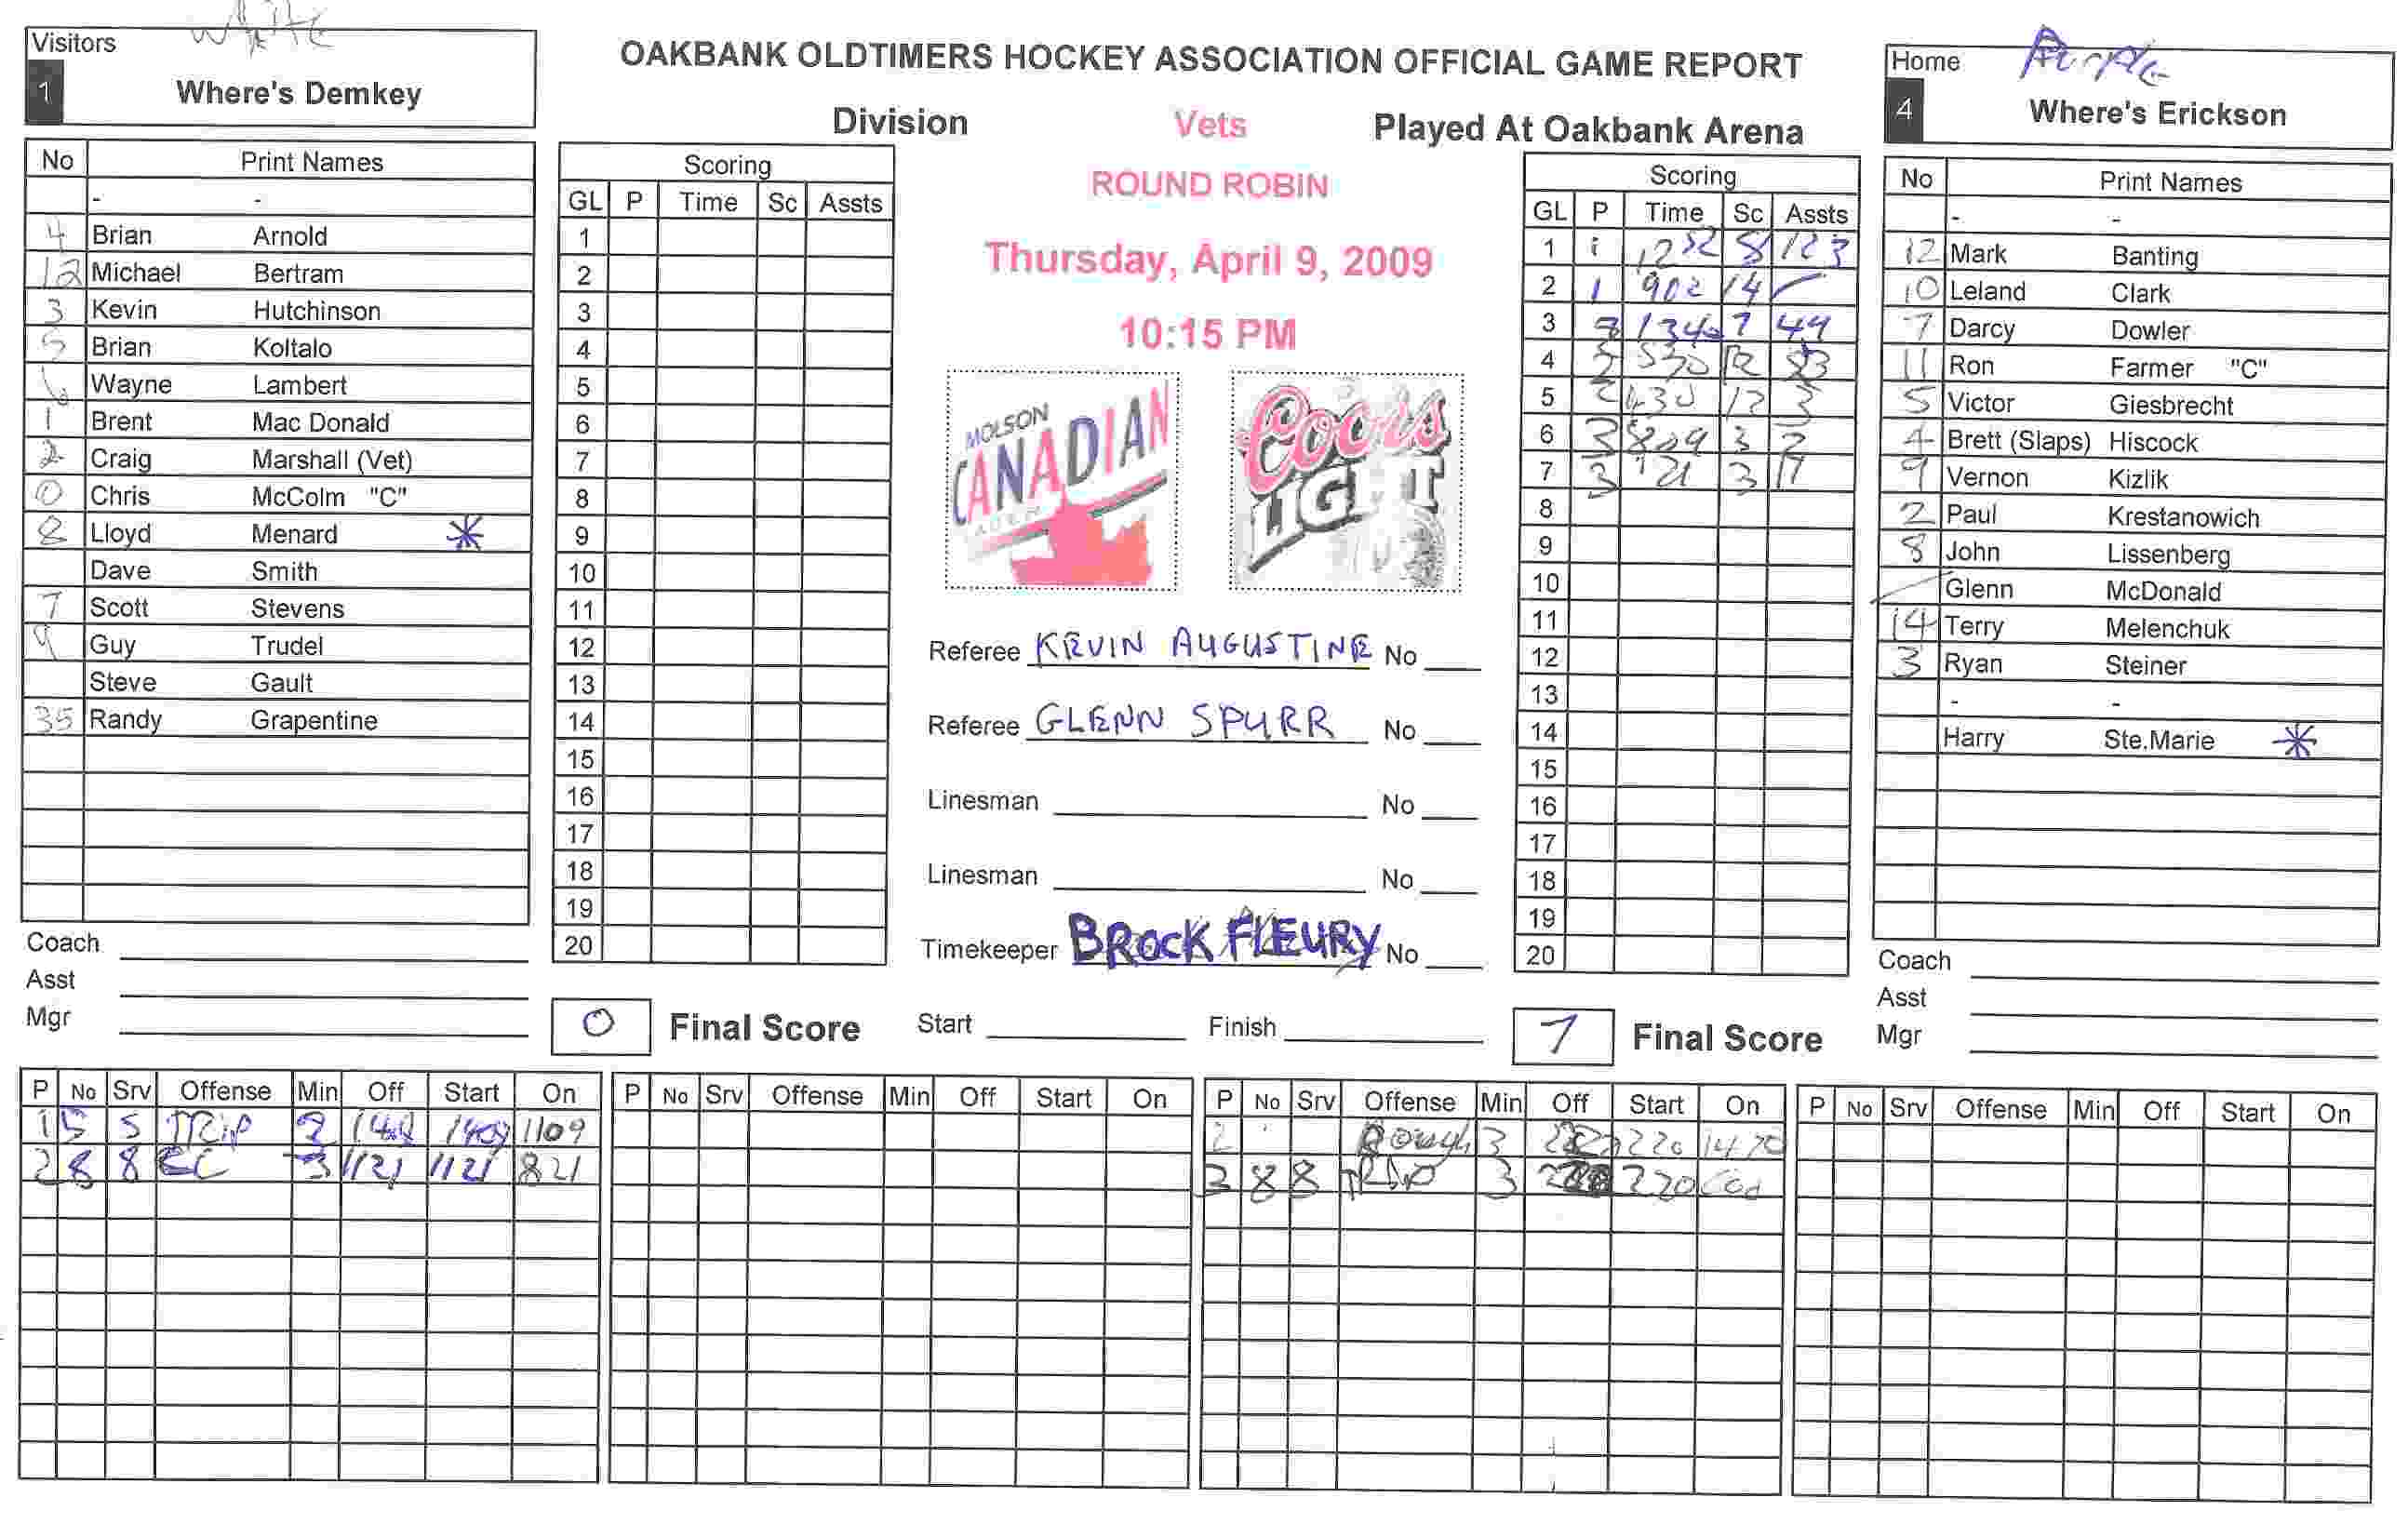 White
Visitors
1
Where's Demkey
OAKBANK OLDTIMERS HOCKEY ASSOCIATION OFFICIAL GAME REPORT
Division Vets Played At Oakbank Arena
ROUND ROBIN
Thursday, April 9, 2009
10:15 PM
Home
Purple
4
Where's Erickson
No Print Names
- -
4 Brian Arnold
12 Michael Bertram
3 Kevin Hutchinson
5 Brian Koltalo
6 Wayne Lambert
1 Brent Mac Donald
2 Craig Marshall (Vet)
0 Chris McColm "C"
8 Lloyd Menard *
Dave Smith
7 Scott Stevens
9 Guy Trudel
Steve Gault
35 Randy Grapentine
Coach
Asst
Mgr
Scoring
GL P Time Sc Assts
1
2
3
4
5
6
7
8
9
10
11
12
13
14
15
16
17
18
19
20
MOLSON
CANADIAN
LAGER
Coors
LIGHT
Referee KEVIN AUGUSTINE No
Referee GLENN SPURR No
Linesman No
Linesman No
Timekeeper BROCK FLEURY No
0 Final Score
Start Finish
7 Final Score
Scoring
GL P Time Sc Assts
1 1 1252 8 12 3
2 1 902 14
3 1342 7 4
4 2 530 12
5 2 430 12 3
6 3 809 3 2
7 3 121 3 17
8
9
10
11
12
13
14
15
16
17
18
19
20
No Print Names
- -
12 Mark Banting
10 Leland Clark
7 Darcy Dowler
11 Ron Farmer "C"
5 Victor Giesbrecht
4 Brett (Slaps) Hiscock
9 Vernon Kizlik
2 Paul Krestanowich
8 John Lissenberg
Glenn McDonald
14 Terry Melenchuk
3 Ryan Steiner
- -
Harry Ste.Marie *
Coach
Asst
Mgr
P No Srv Offense Min Off Start On
1 5 5 TRIP 2 1409 1409 1109
2 8 8 3 1121 1121 821
P No Srv Offense Min Off Start On
P No Srv Offense Min Off Start On
2 Rough 3 220 1420
3 8 8 TRIP 3 220
P No Srv Offense Min Off Start On